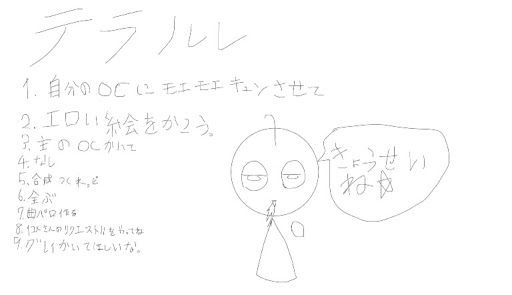 テラルレ
1. 自分のOCにモエモエキュンさせて
2. エロい絵会をかこう。
3. 主のOCかいて
4. なし
5. 合成つくれっと
6. 全ぶ
7. 曲ペロ作る
8. さんのリクエストをやってね
9. グレイかいてほしいな。
きょうせい
ね☆